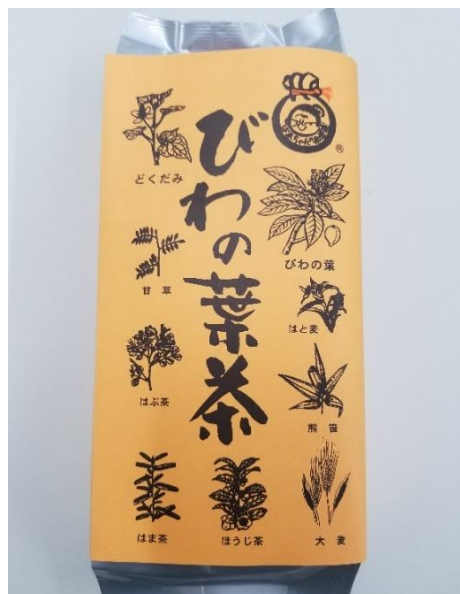 びわの葉茶
®
どくだみ
びわの葉
甘草
はと麦
はぶ茶
熊笹
はま茶
ほうじ茶
大麦